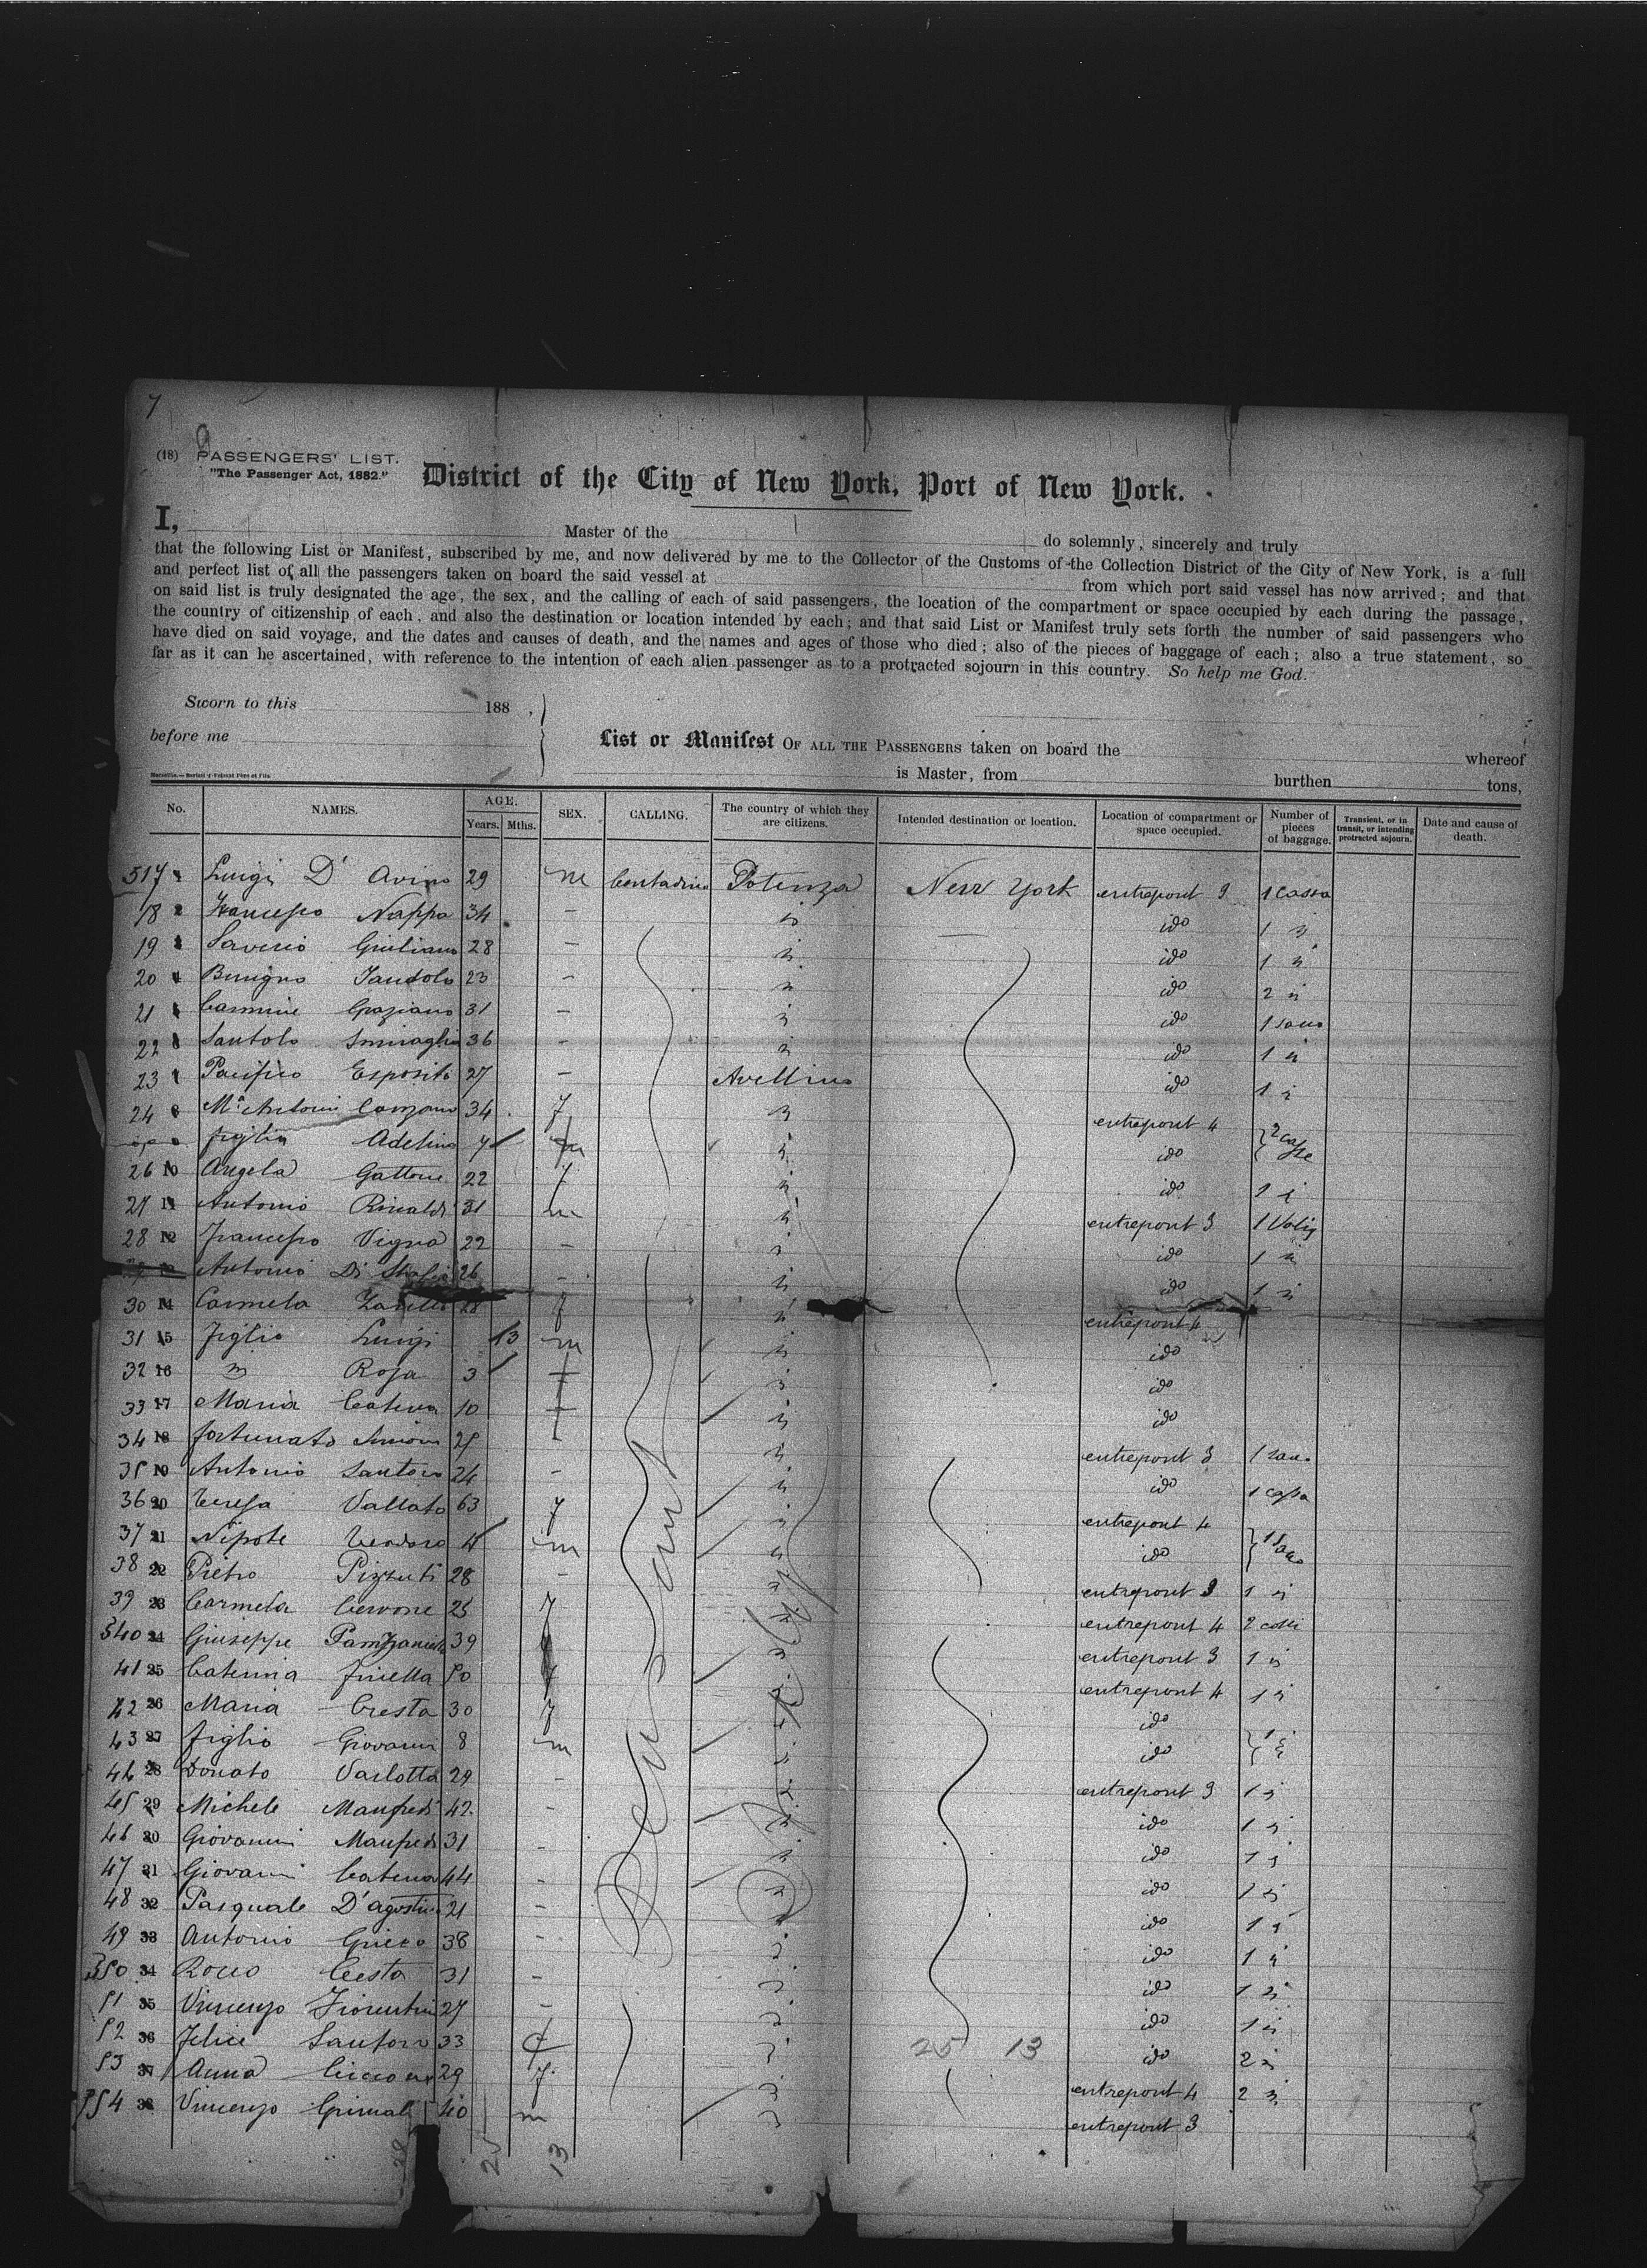 7
(18) PASSENGERS' LIST.
"The Passenger Act, 1882."
District of the City of New York, Port of New York.
I, Master of the do solemnly, sincerely and truly
that the following List or Manifest, subscribed by me, and now delivered by me to the Collector of the Customs of the Collection District of the City of New York, is a full
and perfect list of all the passengers taken on board the said vessel at from which port said vessel has now arrived; and that
on said list is truly designated the age, the sex, and the calling of each of said passengers, the location of the compartment or space occupied by each during the passage,
the country of citizenship of each, and also the destination or location intended by each; and that said List or Manifest truly sets forth the number of said passengers who
have died on said voyage, and the dates and causes of death, and the names and ages of those who died; also of the pieces of baggage of each; also a true statement, so
far as it can be ascertained, with reference to the intention of each alien passenger as to a protracted sojourn in this country. So help me God.
Sworn to this 188 ,
before me
List or Manifest OF ALL THE PASSENGERS taken on board the whereof
is Master, from burthen tons,
No. NAMES. AGE. Years. Mths. SEX. CALLING. The country of which they are citizens. Intended destination or location. Location of compartment or space occupied. Number of pieces of baggage. Transient, or in transit, or intending protracted sojourn. Date and cause of death.
517 Luigi D' Avino 29 m Contadino Potenza New York entrepont 3 1 Cassa
18 Francesco Nappo 34 - ido 1
19 Saverio Giuliano 28 - ido 1
20 Benigno Iandolo 23 - ido 2
21 Carmine Graziano 31 - ido 1 sacco
22 Santolo 36 - ido 1
23 Pacifico Esposito 27 - Avellino ido 1
24 Ma Antonia 34 f entrepont 4
figlia Adelina 7 ido 2 casse
26 10 Angela Gattone 22 f ido 1
27 11 Antonio Rinaldi 31 m entrepont 3 1 Valig
28 12 Francesco Vigna 22 - ido 1
Antonio Di 26 - ido 1
30 14 Carmela 28 f entrepont 4
31 15 figlio Luigi 13 m ido
32 16 Rosa 3 f ido
33 17 Maria Catena 10 f ido
34 18 Fortunato 25 entrepont 3 1 sacco
35 19 Antonio Santoro 24 - ido 1 cassa
36 20 Teresa Vallato 63 f entrepont 4
37 21 Nipote Teodoro 4 m ido 1 sacco
38 22 Pietro Pizzuti 28 - entrepont 3 1
39 23 Carmela Cervone 25 f entrepont 4 2 colli
540 24 Giuseppe 39 entrepont 3 1
41 25 Caterina Finella 50 f entrepont 4 1
42 26 Maria Cresta 30 f ido
43 27 figlio Giovanni 8 m ido 1
44 28 Donato Varlotta 29 - entrepont 3 1
45 29 Michele Manfredi 42 - ido 1
46 30 Giovanni Manfredi 31 - ido 1
47 31 Giovanni Catena 44 - ido 1
48 32 Pasquale D'agostino 21 - ido 1
49 33 Antonio Grieco 38 - ido 1
550 34 Rocco Cresta 31 - ido 1
51 35 Vincenzo Fiorentini 27 - ido 1
52 36 Felice Santoro 33 25 13 ido 2
53 37 Anna Ciccone 29 f entrepont 4 2
554 38 Vincenzo Grimal 40 m entrepont 3
Peasant
Italy
25 13